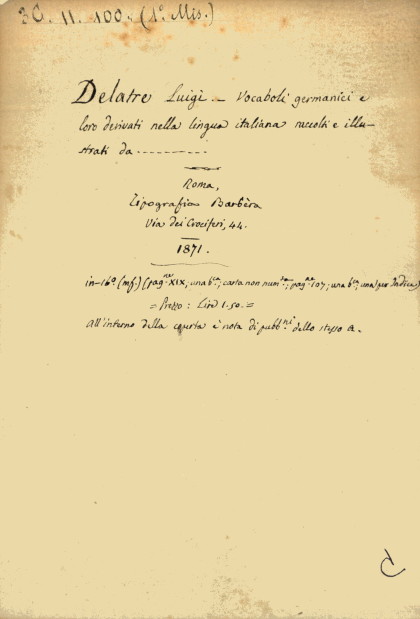 3C. 11. 100. (1ª Mis.)
Delatre Luigi. - Vocaboli germanici e
loro derivati nella lingua italiana raccolti e illu-
strati da ----------
Roma,
Tipografia Barbèra
Via dei Crociferi, 44.
1871.
in-16º (mf.) (pag.ne XIX; una b.ca; carta non num.ta; pag.ne 107; una b.ca; una per Indice)
= Prezzo: Lire 1.50. =
All'interno della coperta è nota di pubb.ni dello stesso A.